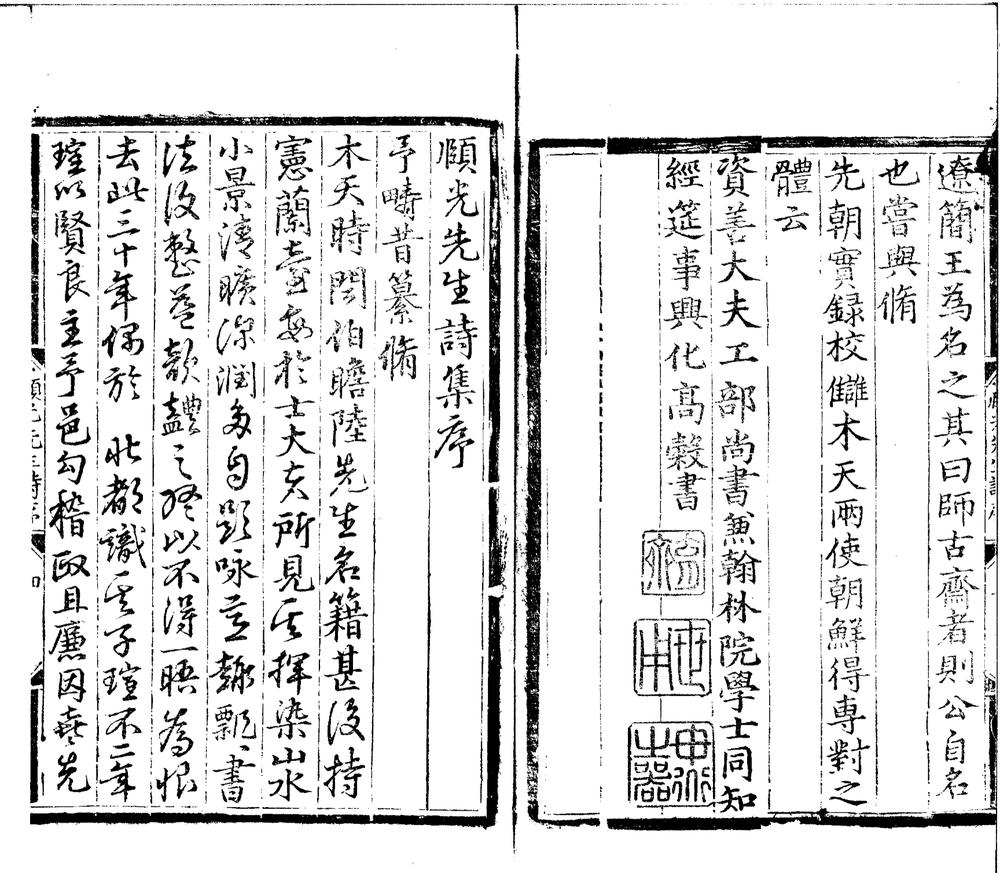 遼簡王為名之其曰師古齋者則公自名
也嘗與脩
先朝實録校讎木天兩使朝鮮得専對之
體云
資善大夫工部尚書兼翰林院學士同知
經筵事興化髙穀書
世用
頤光先生詩集序
予疇昔纂脩
木天時聞伯瞻陸先生名籍甚後持
憲蘭臺每於士大夫所見其揮染山水
小景清曠深潤多自題咏意趣飄〻書
法復整蓋歆艷之終以不得一晤為恨
去此三十年偶於 北都識其子瑄不二年
瑄以賢良主予邑勾稽敏且廉因表先